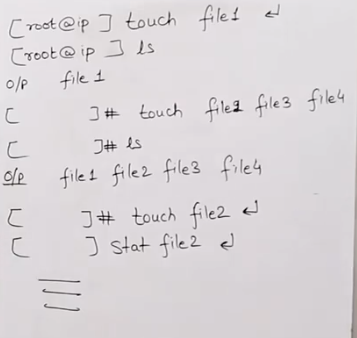 [root@ip ] touch file1 ↵
[root@ip ] ls
O/P file 1
[ ]# touch file2 file3 file4
[ ]# ls
O/P file1 file2 file3 file4
[ ]# touch file2 ↵
[ ] stat file2 ↵